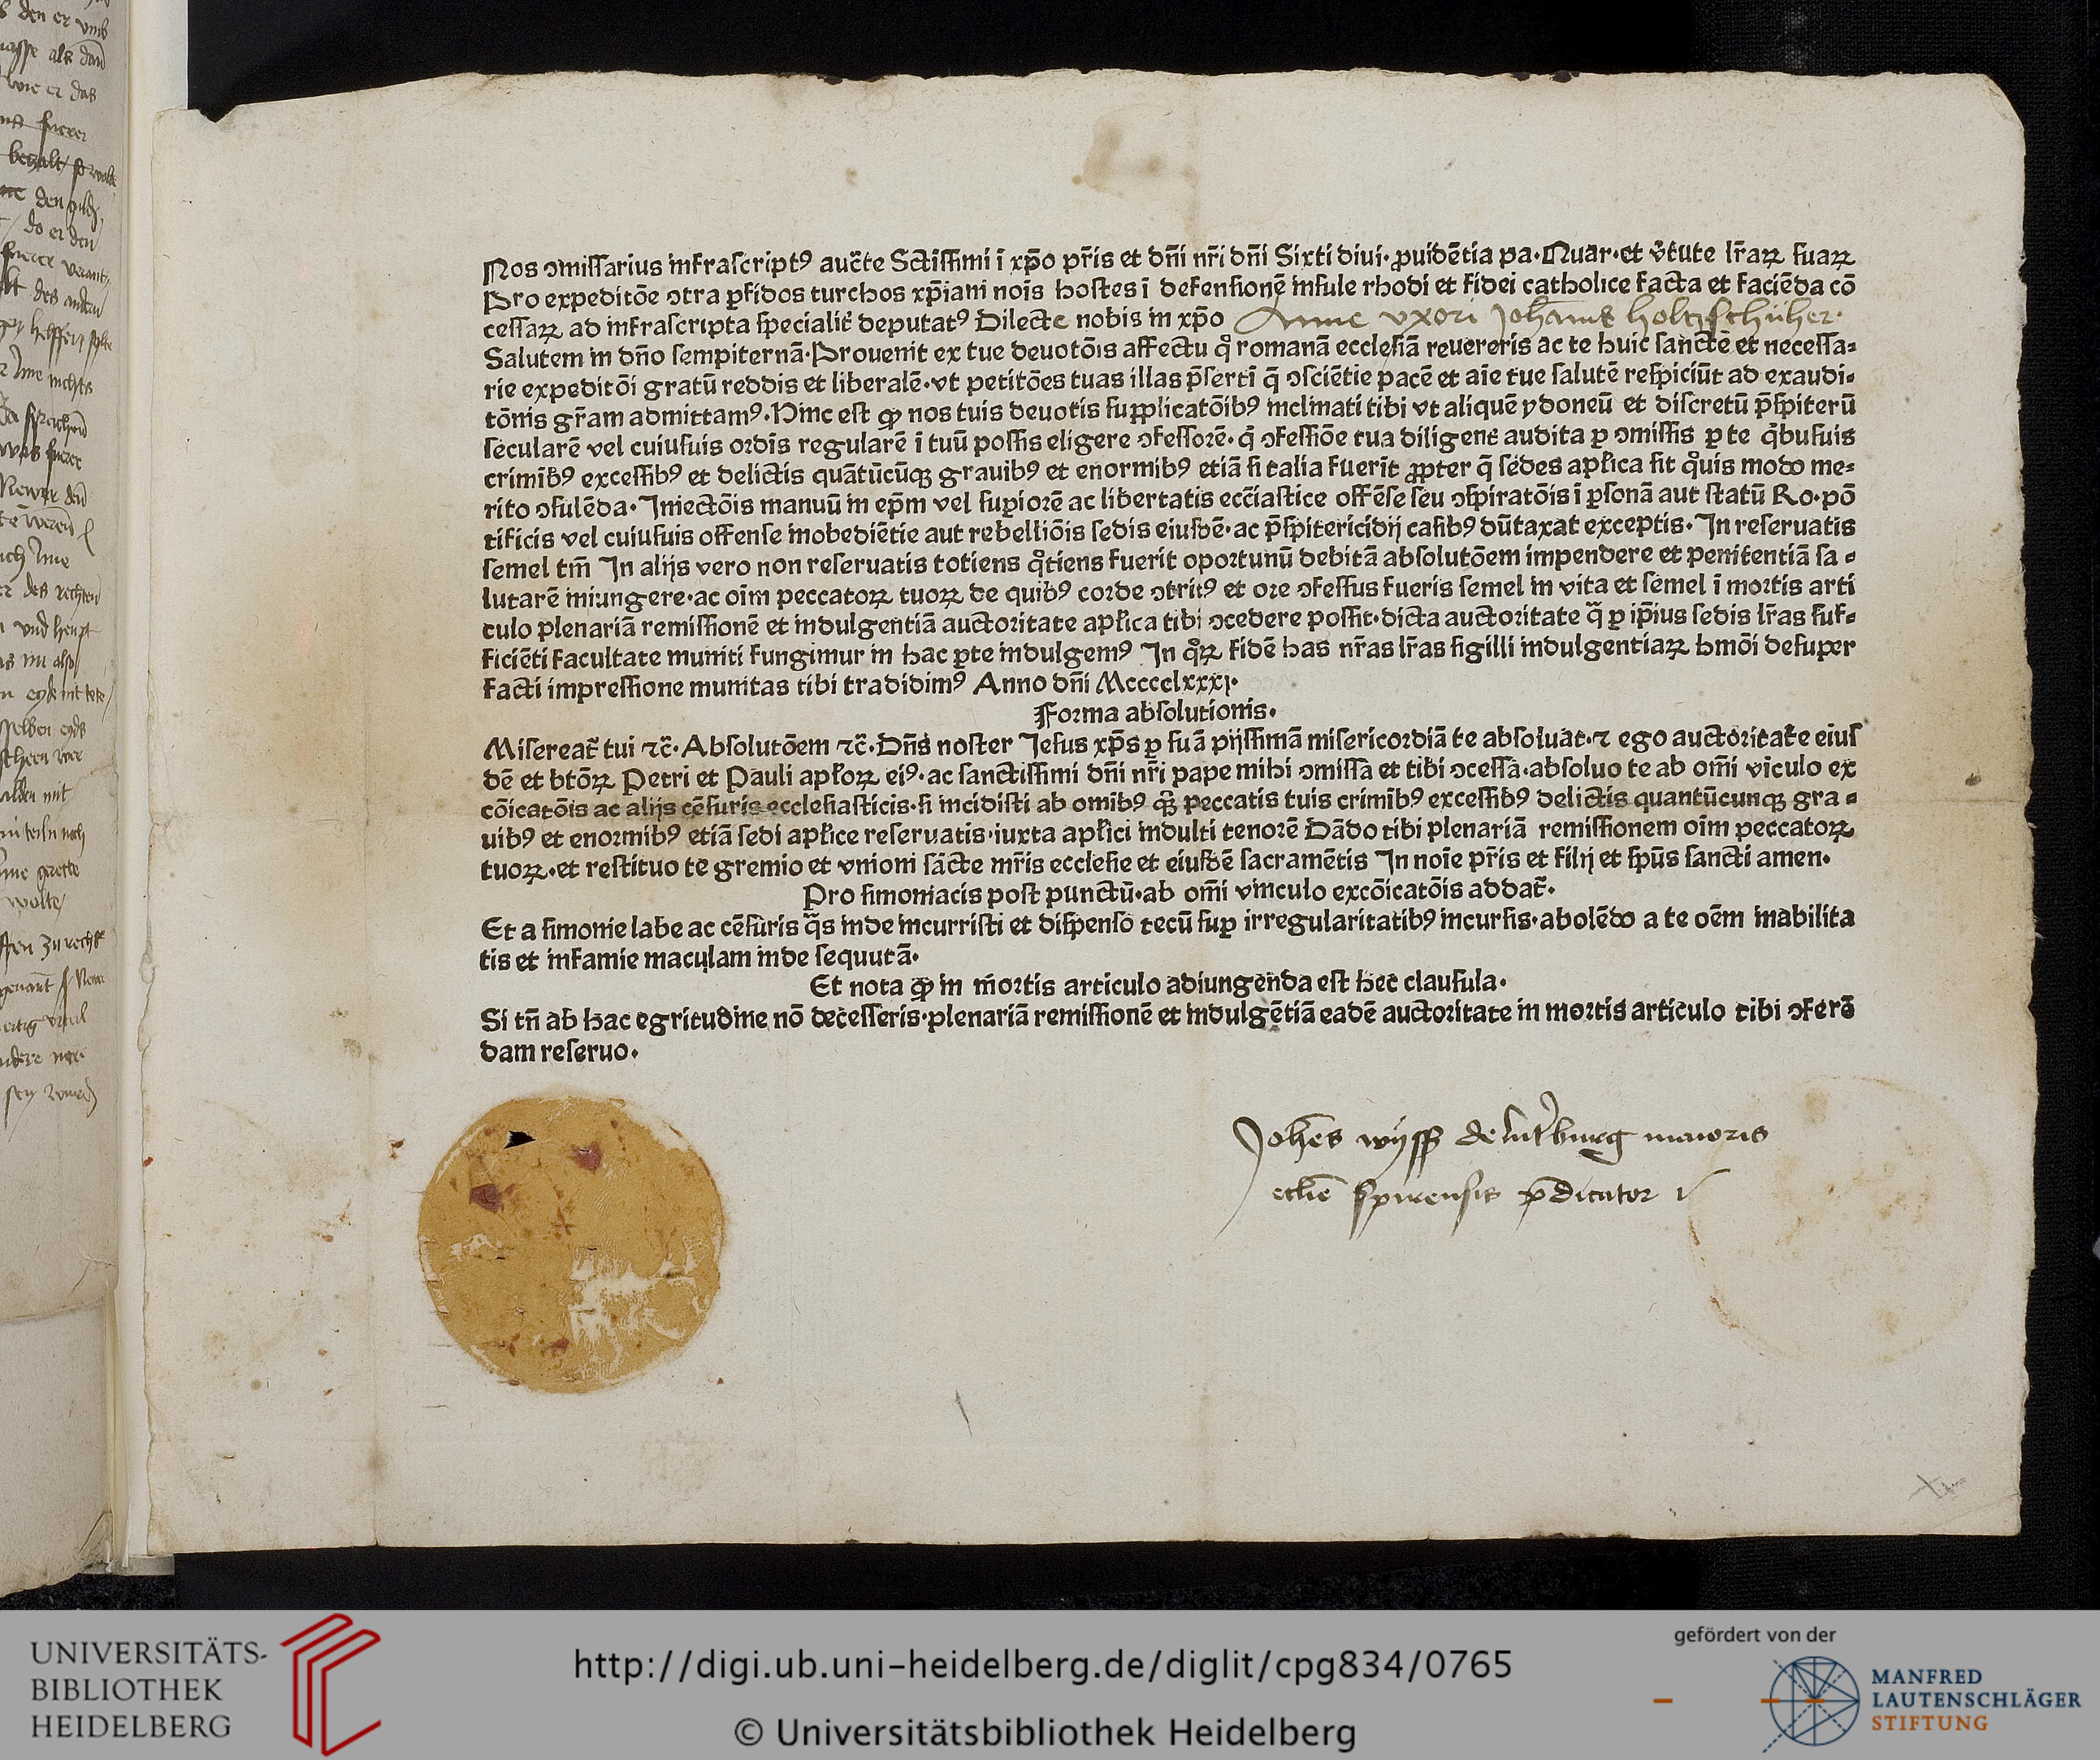 den er vmb
als dan
wie er das
furer
bezalt / so
den
do er den
des andern
Nos ↄmissarius infrascriptꝰ auc̄te Sctissimi ī xp̄o pr̄is et dn̄i nr̄i dn̄i Sixti diui· ꝓuidētia pa·Quar·et v̄tute lr̄aꝝ suaꝝ
Pro expeditōe ↄtra ꝑfidos turchos xp̄iani noīs hostes ī defensionē insule rhodi et fidei catholice facta et faciēda cō
cessaꝝ ad infrascripta specialit̄ deputatꝰ Dilecte nobis in xp̄o Anne vxori Johānis holtzschüher·
Salutem in dn̄o sempiternā·Prouenit ex tue deuotōis affectu qͦ romanā ecclesiā reuereris ac te huic sanctē et necessa-
rie expeditōi gratū reddis et liberalē·vt petitōes tuas illas p̄sertī q̄ ↄsciētie pacē et aīe tue salutē respiciūt ad exaudi-
tōnis gr̄am admittamꝰ·Hinc est ꝙ nos tuis deuotis supplicatōibꝰ inclinati tibi vt aliquē ydoneū et discretū p̄sbiterū
secularē vel cuiusuis ordīs regularē ī tuū possis eligere ↄfessorē·q̄ ↄfessiōe tua diligent̄ audita ꝑ ↄmissis ꝑ te q̄busuis
crimībꝰ excessibꝰ et delictis quātūcūqꝫ grauibꝰ et enormibꝰ etiā si talia fuerīt ꝓpter q̄ sedes apl̄ica sit qͦuis modo me-
rito ↄsulēda·Iniectōis manuū in ep̄m vel supiorē ac libertatis ecc̄iastice offēse seu ↄspiratōis ī ꝑsonā aut statū Ro·pō
tificis vel cuiusuis offense inobediētie aut rebelliōis sedis eiusdē·ac p̄sbitericidij casibꝰ dūtaxat exceptis·In reseruatis
semel tm̄ In alijs vero non reseruatis totiens qͦtiens fuerit oportunū debitā absolutōem impendere et penitentiā sa -
lutarē iniungere·ac oīm peccatoꝝ tuoꝝ de quibꝰ corde ↄtritꝰ et ore ↄfessus fueris semel in vita et semel ī mortis arti
culo plenariā remissionē et indulgentiā auctoritate apl̄ica tibi ↄcedere possit·dicta auctoritate q̄ ꝑ ip̄ius sedis lr̄as suf-
ficiēti facultate muniti fungimur in hac ꝑte indulgemꝰ In qͦꝝ fidē has nr̄as lr̄as sigilli indulgentiaꝝ hmōi desuper
facti impressione munitas tibi tradidimꝰ Anno dn̄i Mccccclxxxj·
Forma absolutionis·
Misereat̄ tui ⁊c̄·Absolutōem ⁊c̄·Dn̄s noster Jesus xp̄s ꝑ suā pijssimā misericordiā te absoluat·⁊ ego auctoritate eius
dē et btōꝝ Petri et Pauli apl̄oꝝ eiꝰ·ac sanctissimi dn̄i nr̄i pape mihi ↄmissa et tibi ↄcessa·absoluo te ab om̄i vīculo ex
cōicatōis ac alijs cēsuris ecclesiasticis·si incidisti ab omibꝰ qꝫ peccatis tuis crimībꝰ excessibꝰ delictis quantūcunqꝫ gra -
uibꝰ et enormibꝰ etiā sedi apl̄ice reseruatis·iuxta apl̄ici indulti tenorē Dādo tibi plenariā remissionem oīm peccatoꝝ
tuoꝝ·et restituo te gremio et vnioni sācte mr̄is ecclesie et eiusdē sacramētis In noīe pr̄is et filij et sp̄us sancti amen·
Pro simoniacis post punctū·ab om̄i vinculo excōicatōis addat̄·
Et a simonie labe ac cēsuris q̄s inde incurristi et dispenso tecū sup irregularitatibꝰ incursis·abolēdo a te oēm inabilita
tis et infamie maculam inde sequutā·
Et nota ꝙ in mortis articulo adiungenda est hec clausula·
Si tn̄ ab hac egritudine nō decesseris·plenariā remissionē et indulgētiā eadē auctoritate in mortis articulo tibi ↄferē
dam reseruo·
Johēs wÿss de lut̄burg maioris
eccl̄ie spirensis p̄dicator
UNIVERSITÄTS-
BIBLIOTHEK
HEIDELBERG
http://digi.ub.uni-heidelberg.de/diglit/cpg834/0765
© Universitätsbibliothek Heidelberg
gefördert von der
MANFRED
LAUTENSCHLÄGER
STIFTUNG